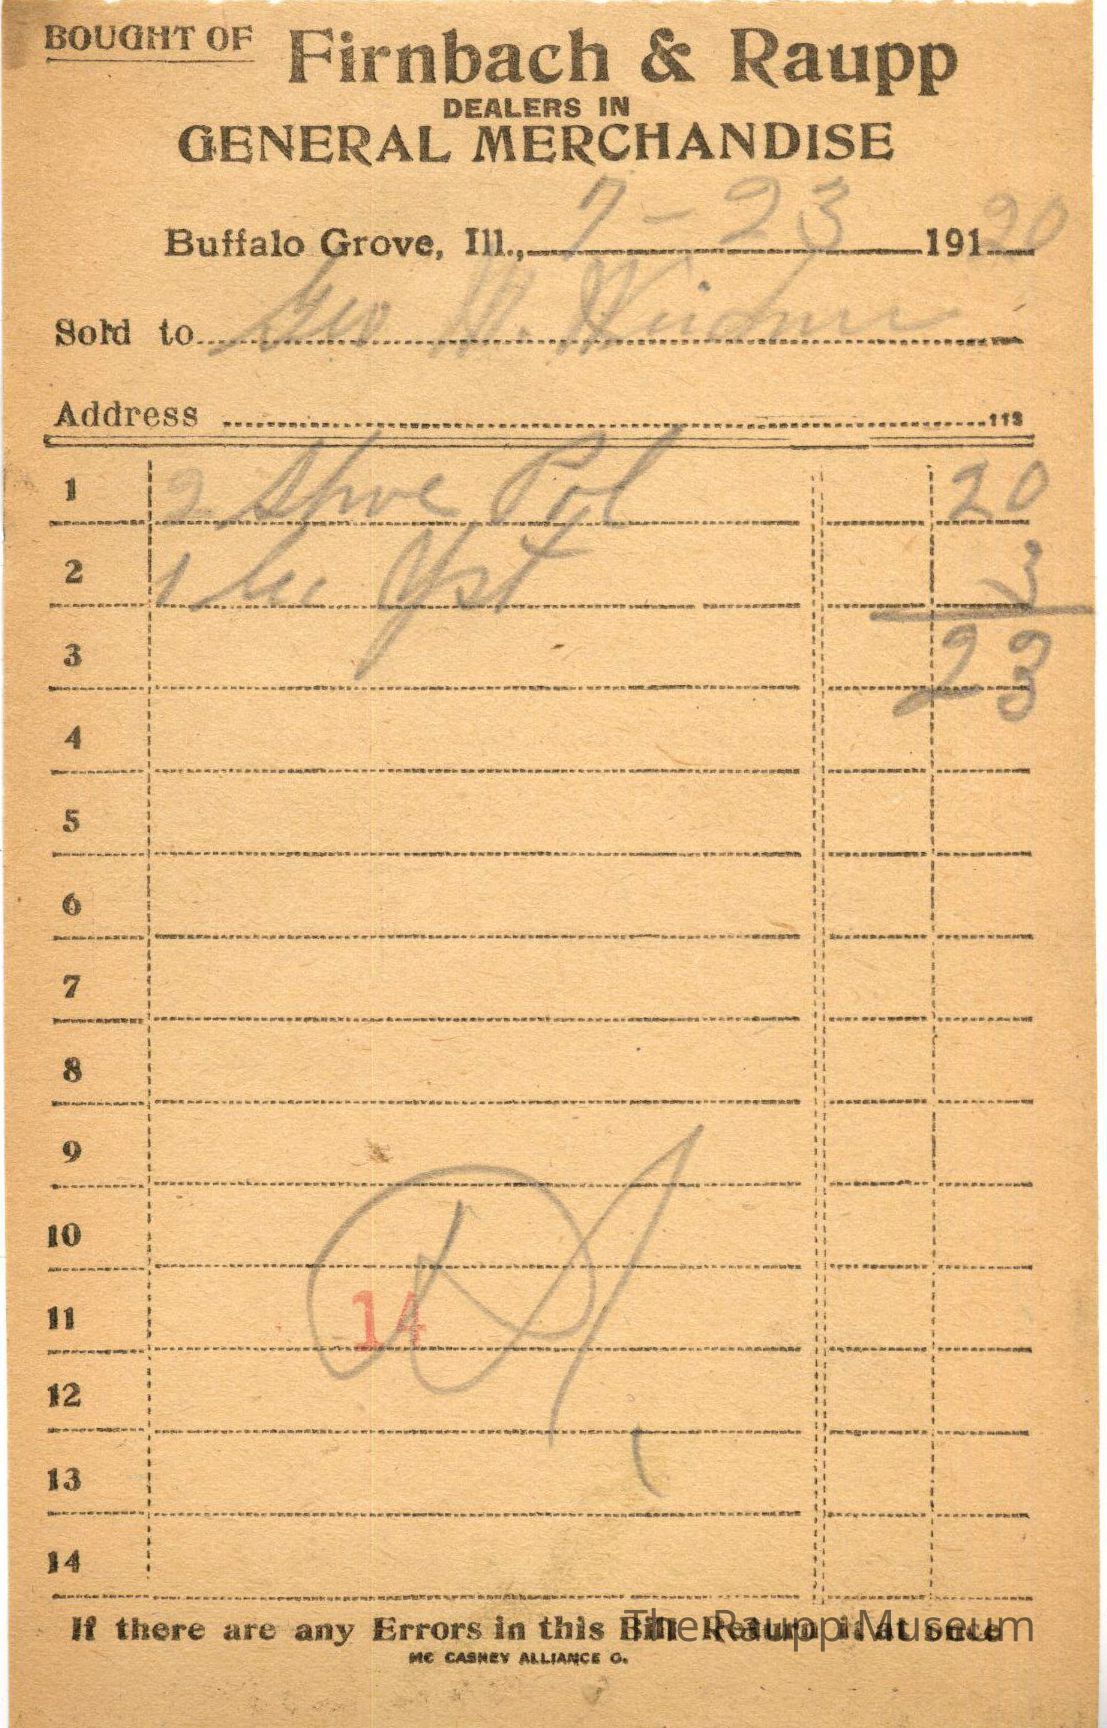 BOUGHT OF Firnbach & Raupp
DEALERS IN
GENERAL MERCHANDISE
Buffalo Grove, Ill., 7-23 191 20
Sold to Geo W. Weidner
Address 113
1 2 Shoe Pol 20
2 1 Yst 3
3 23
4
5
6
7
8
9
10
11 14
12
13
14
If there are any Errors in this Bill Return it at once
The Raupp Museum
MC CASKEY ALLIANCE O.